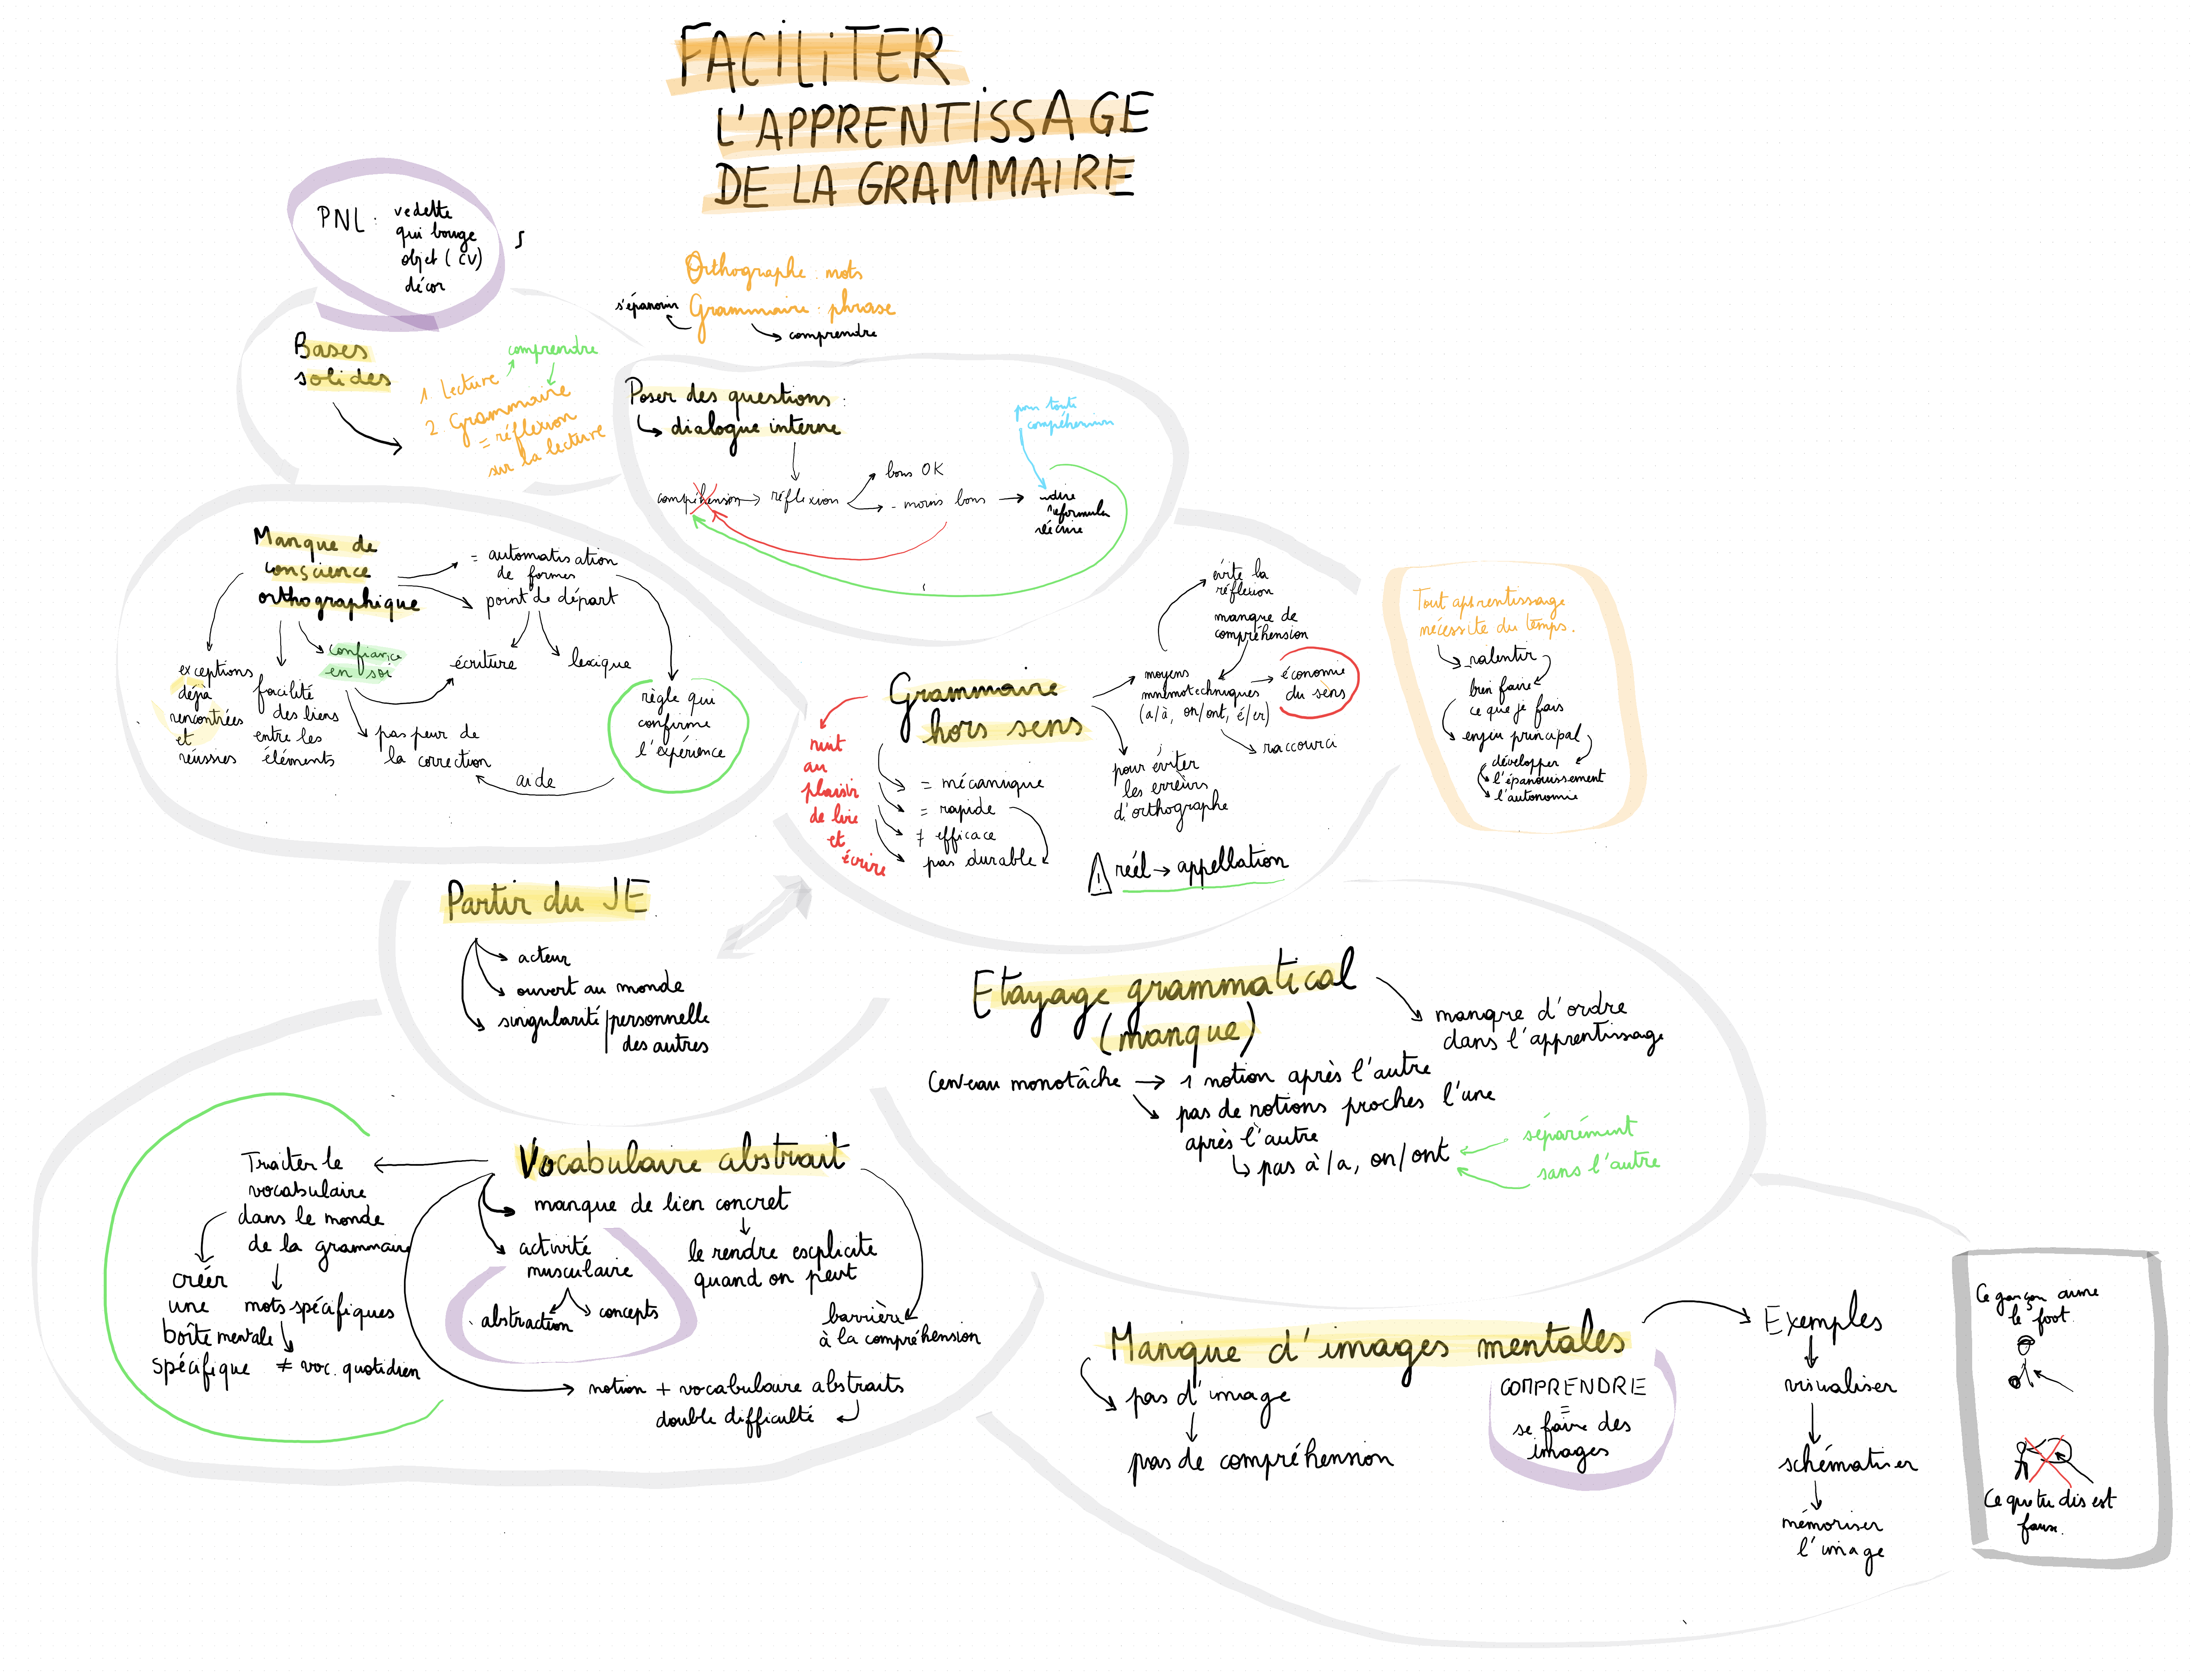 FACILITER
L'APPRENTISSAGE
DE LA GRAMMAIRE
PNL : vedette
qui bouge
objet (CV)
décor
Orthographe . mots
s'épanouir Grammaire . phrase
comprendre
Bases
solides
comprendre
1 Lecture
2 Grammaire
= réflexion
sur la lecture
Poser des questions :
dialogue interne
pour toute
compréhension
compréhension réflexion
bons OK
- moins bons
redire
reformuler
réécrire
Manque de
conscience
orthographique
= automatisation
de formes
point de départ
écriture
lexique
confiance
en soi
exceptions
déjà
rencontrées
et
réussies
facilité
des liens
entre les
éléments
pas peur de
la correction
aide
règle qui
confirme
l'expérience
Grammaire
hors sens
nuit
au
plaisir
de lire
et
écrire
= mécanique
= rapide
≠ efficace
pas durable
évite la
réflexion
manque de
compréhension
moyens
mnémotechniques
(a/à, on/ont, é/er)
économie
du sens
raccourci
pour éviter
les erreurs
d'orthographe
! réel → appellation
Tout apprentissage
nécessite du temps.
ralentir
bien faire
ce que je fais
enjeu principal
développer
l'épanouissement
l'autonomie
Partir du JE
acteur
ouvert au monde
singularité/personnelle
des autres
Etayage grammatical
(manque)
manque d'ordre
dans l'apprentissage
Cerveau monotâche → 1 notion après l'autre
pas de notions proches l'une
après l'autre
pas à/a, on/ont
séparément
sans l'autre
Vocabulaire abstrait
Traiter le
vocabulaire
dans le monde
de la grammaire
créer
une
boîte mentale
spécifique
mots spécifiques
≠ voc. quotidien
manque de lien concret
le rendre explicite
quand on peut
activité
musculaire
abstraction
concepts
barrière
à la compréhension
notion + vocabulaire abstraits
double difficulté
Manque d'images mentales
pas d'image
pas de compréhension
COMPRENDRE
=
se faire des
images
Exemples
visualiser
schématiser
mémoriser
l'image
Ce garçon aime
le foot.
Ce que tu dis est
faux.